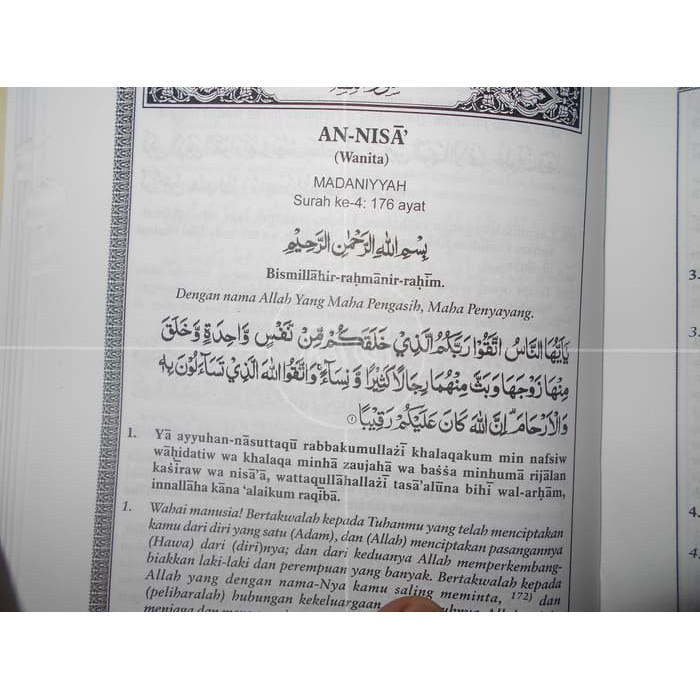 AN-NISĀ’
(Wanita)
MADANIYYAH
Surah ke-4: 176 ayat
بِسْمِ اللّٰهِ الرَّحْمٰنِ الرَّحِيْمِ
Bismillāhir-raḥmānir-raḥīm.
Dengan nama Allah Yang Maha Pengasih, Maha Penyayang.
يٰٓاَيُّهَا النَّاسُ اتَّقُوْا رَبَّكُمُ الَّذِيْ خَلَقَكُمْ مِّنْ نَّفْسٍ وَّاحِدَةٍ وَّخَلَقَ
مِنْهَا زَوْجَهَا وَبَثَّ مِنْهُمَا رِجَالًا كَثِيْرًا وَّنِسَاۤءً ۚ وَاتَّقُوا اللّٰهَ الَّذِيْ تَسَاۤءَلُوْنَ بِهٖ
وَالْاَرْحَامَ ۗ اِنَّ اللّٰهَ كَانَ عَلَيْكُمْ رَقِيْبًا ١
1. Yā ayyuhan-nāsuttaqū rabbakumullażī khalaqakum min nafsiw
wāḥidatiw wa khalaqa minhā zaujahā wa baṡṡa minhumā rijālan
kaṡīraw wa nisā’ā, wattaqullāhallażī tasā’alūna bihī wal-arḥām,
innallāha kāna ‘alaikum raqībā.
1. Wahai manusia! Bertakwalah kepada Tuhanmu yang telah menciptakan
kamu dari diri yang satu (Adam), dan (Allah) menciptakan pasangannya
(Hawa) dari (diri)nya; dan dari keduanya Allah memperkembang-
biakkan laki-laki dan perempuan yang banyak. Bertakwalah kepada
Allah yang dengan nama-Nya kamu saling meminta, 172) dan
(peliharalah) hubungan kekeluargaan
menjaga dan
3.
3.
4.
4.